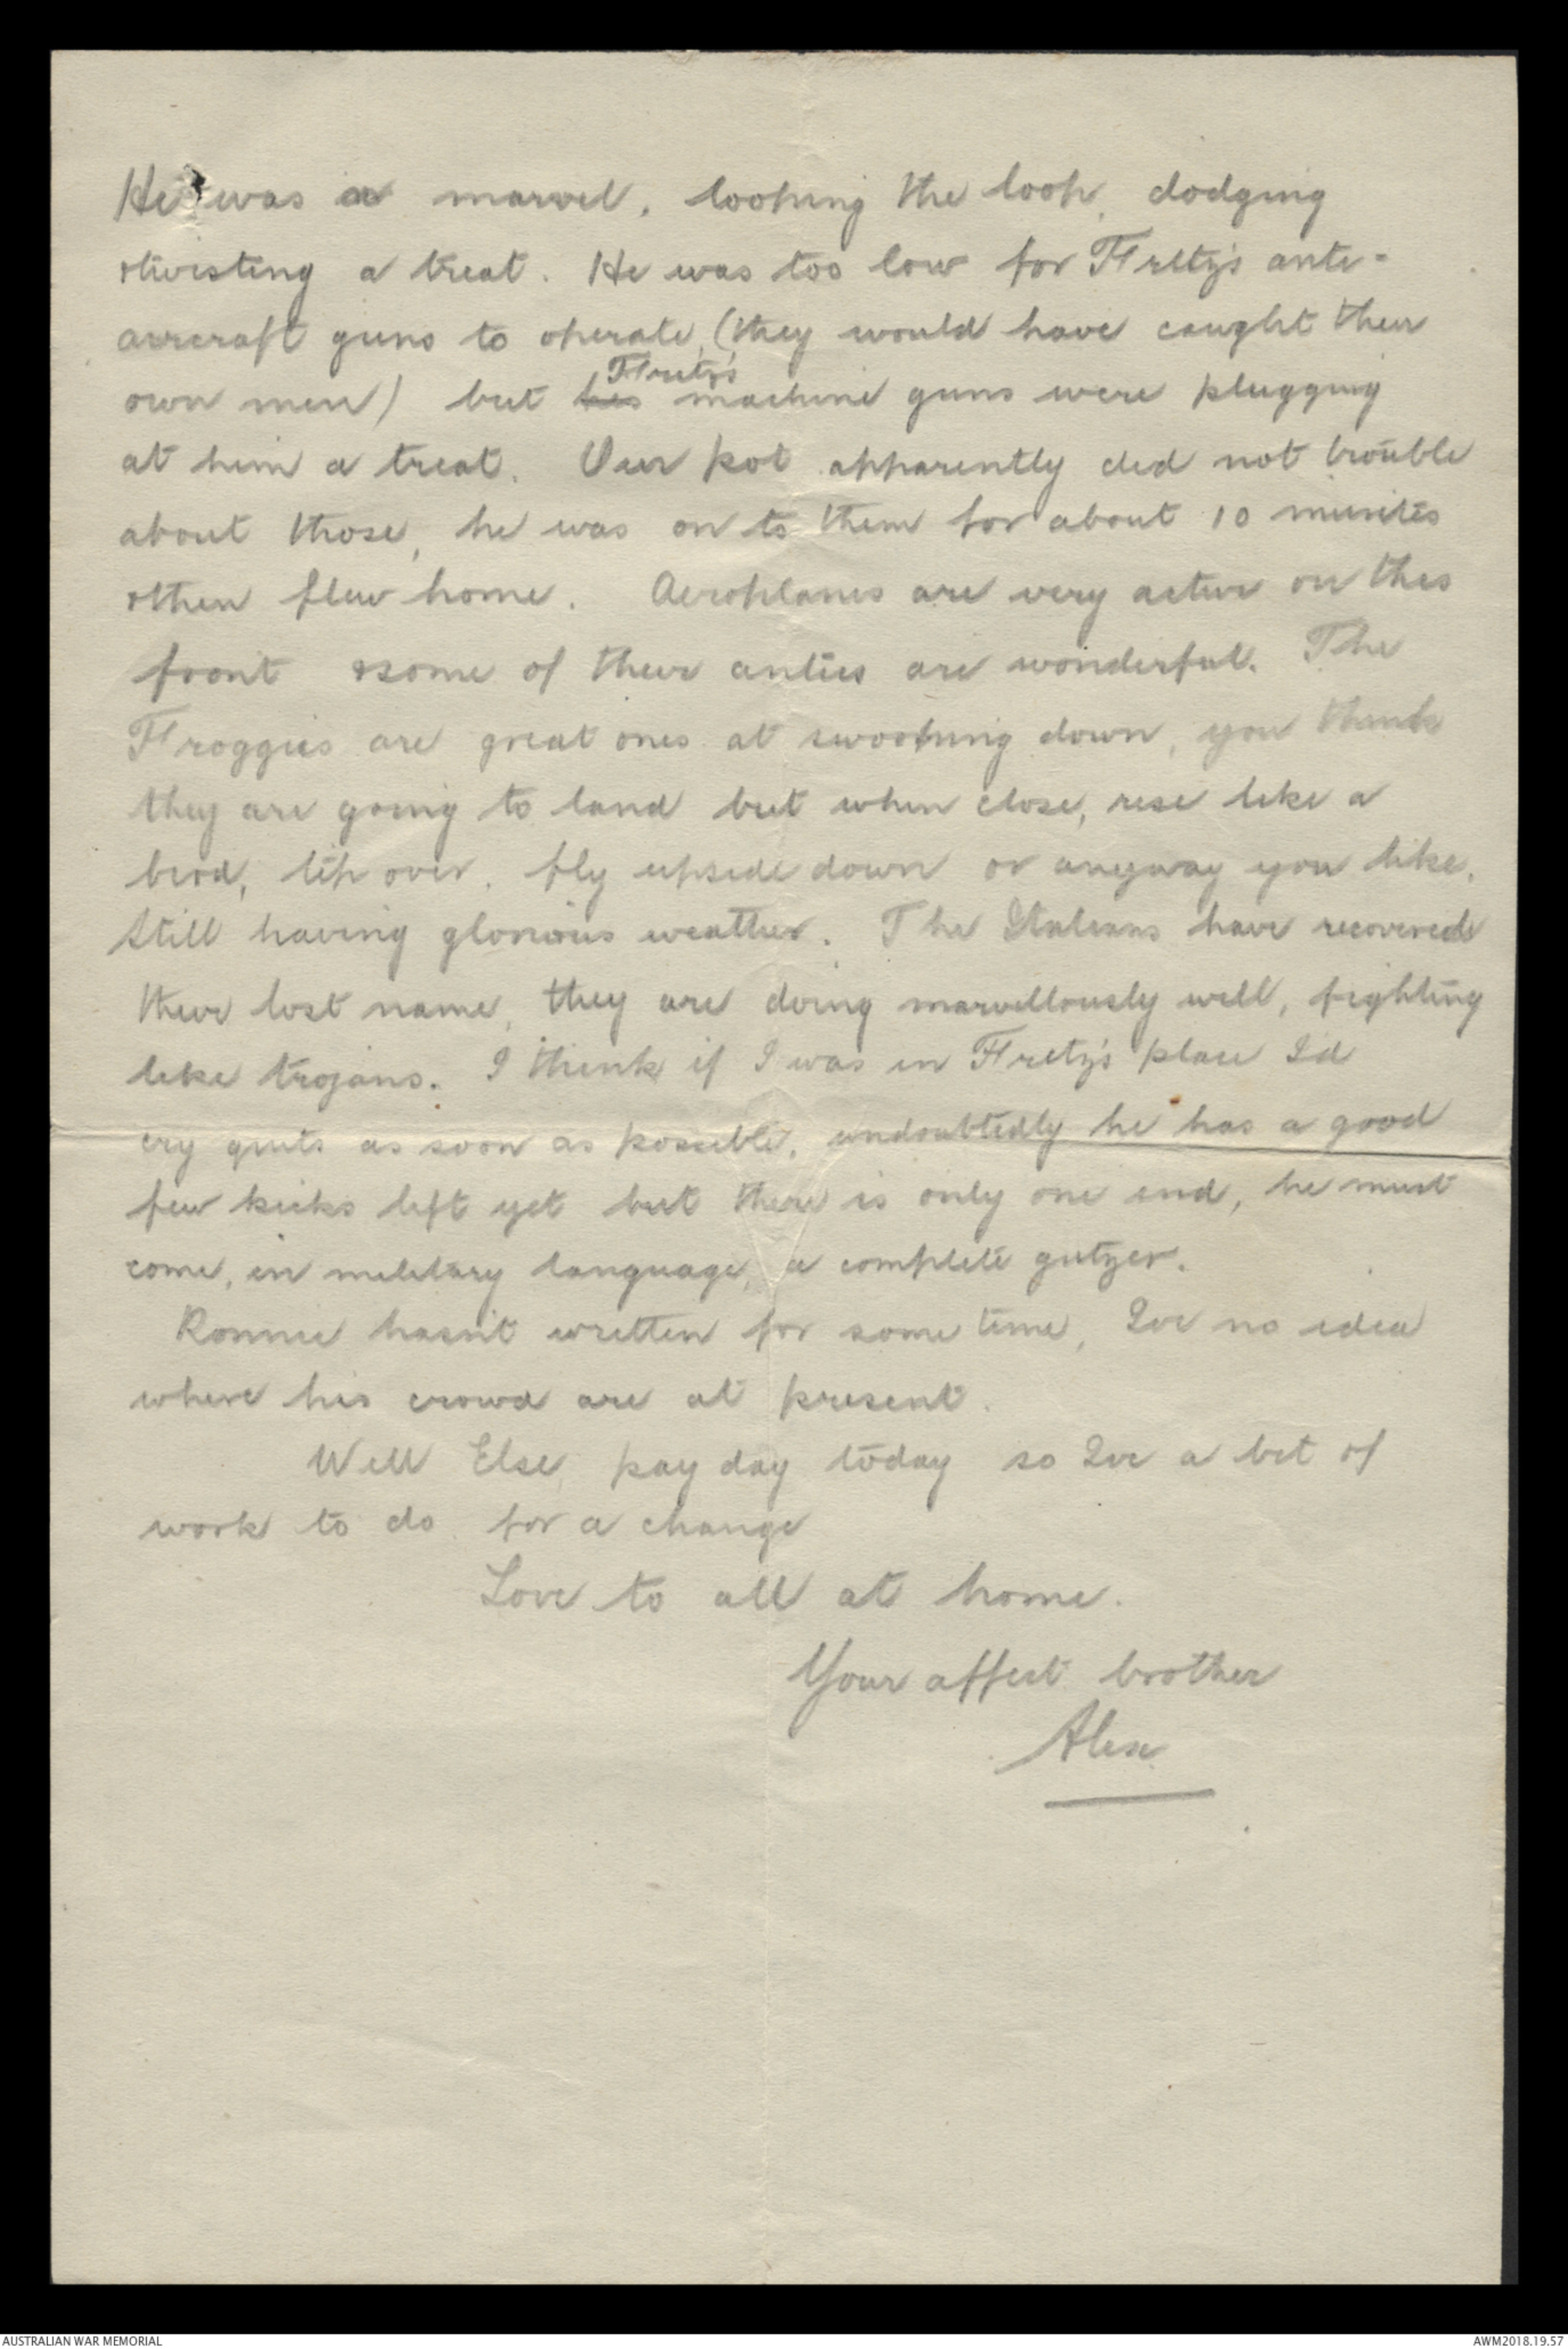 He was a marvel, looping the loop, dodging
& twisting a treat. He was too low for Fritz's anti-
aircraft guns to operate, (they would have caught their
own men) but his Fritz's machine guns were plugging
at him a treat. Our pot apparently did not trouble
about those, he was on to them for about 10 minutes
& then flew home. Aeroplanes are very active on this
front & some of their antics are wonderful. The
Froggies are great ones at swooping down, you think
they are going to land but when close, rise like a
bird, tip over, fly upside down or anyway you like.
Still having glorious weather. The Italians have recovered
their lost name, they are doing marvellously well, fighting
like trojans. I think if I was in Fritz's place I'd
cry quits as soon as possible, undoubtedly he has a good
few kicks left yet but there is only one end, he must
come, in military language, a complete gutzer.
Ronnie hasn't written for some time, I've no idea
where his crowd are at present.
Well Else, pay day today so I've a bit of
work to do for a change
Love to all at home.
Your affect. brother
Alex
AUSTRALIAN WAR MEMORIAL
AWM2018.19.57